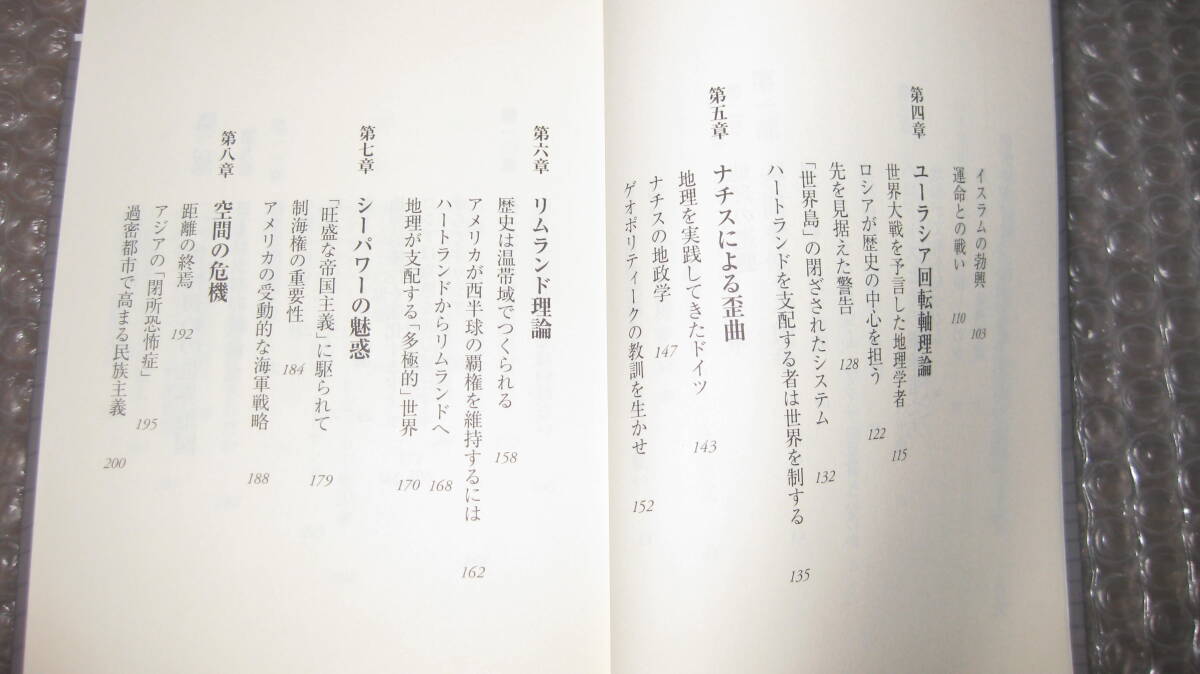 イスラムの勃興 103
運命との戦い 110
第四章 ユーラシア回転軸理論
世界大戦を予言した地理学者 115
ロシアが歴史の中心を担う 122
先を見据えた警告 128
「世界島」の閉ざされたシステム 132
ハートランドを支配する者は世界を制する 135
第五章 ナチスによる歪曲
地理を実践してきたドイツ 143
ナチスの地政学 147
ゲオポリティークの教訓を生かせ 152
第六章 リムランド理論
歴史は温帯域でつくられる 158
アメリカが西半球の覇権を維持するには 162
ハートランドからリムランドへ 168
地理が支配する「多極的」世界 170
第七章 シーパワーの魅惑
「旺盛な帝国主義」に駆られて 179
制海権の重要性 184
アメリカの受動的な海軍戦略 188
第八章 空間の危機
距離の終焉 192
アジアの「閉所恐怖症」 195
過密都市で高まる民族主義 200